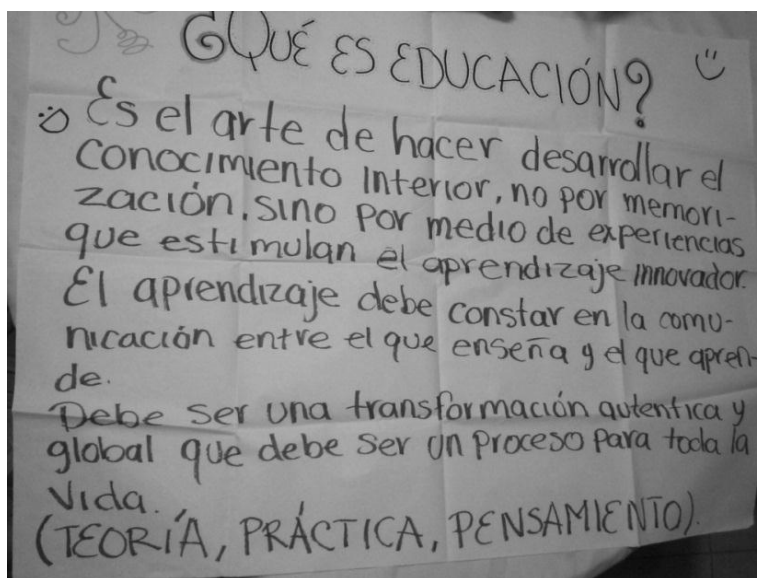 ¿QUÉ ES EDUCACIÓN?
Es el arte de hacer desarrollar el
conocimiento interior, no por memori-
zación. sino por medio de experiencias
que estimulan el aprendizaje innovador.
El aprendizaje debe constar en la comu-
nicación entre el que enseña y el que apren-
de.
Debe ser una transformación autentica y
global que debe ser un proceso para toda la
vida.
(TEORÍA, PRÁCTICA, PENSAMIENTO).